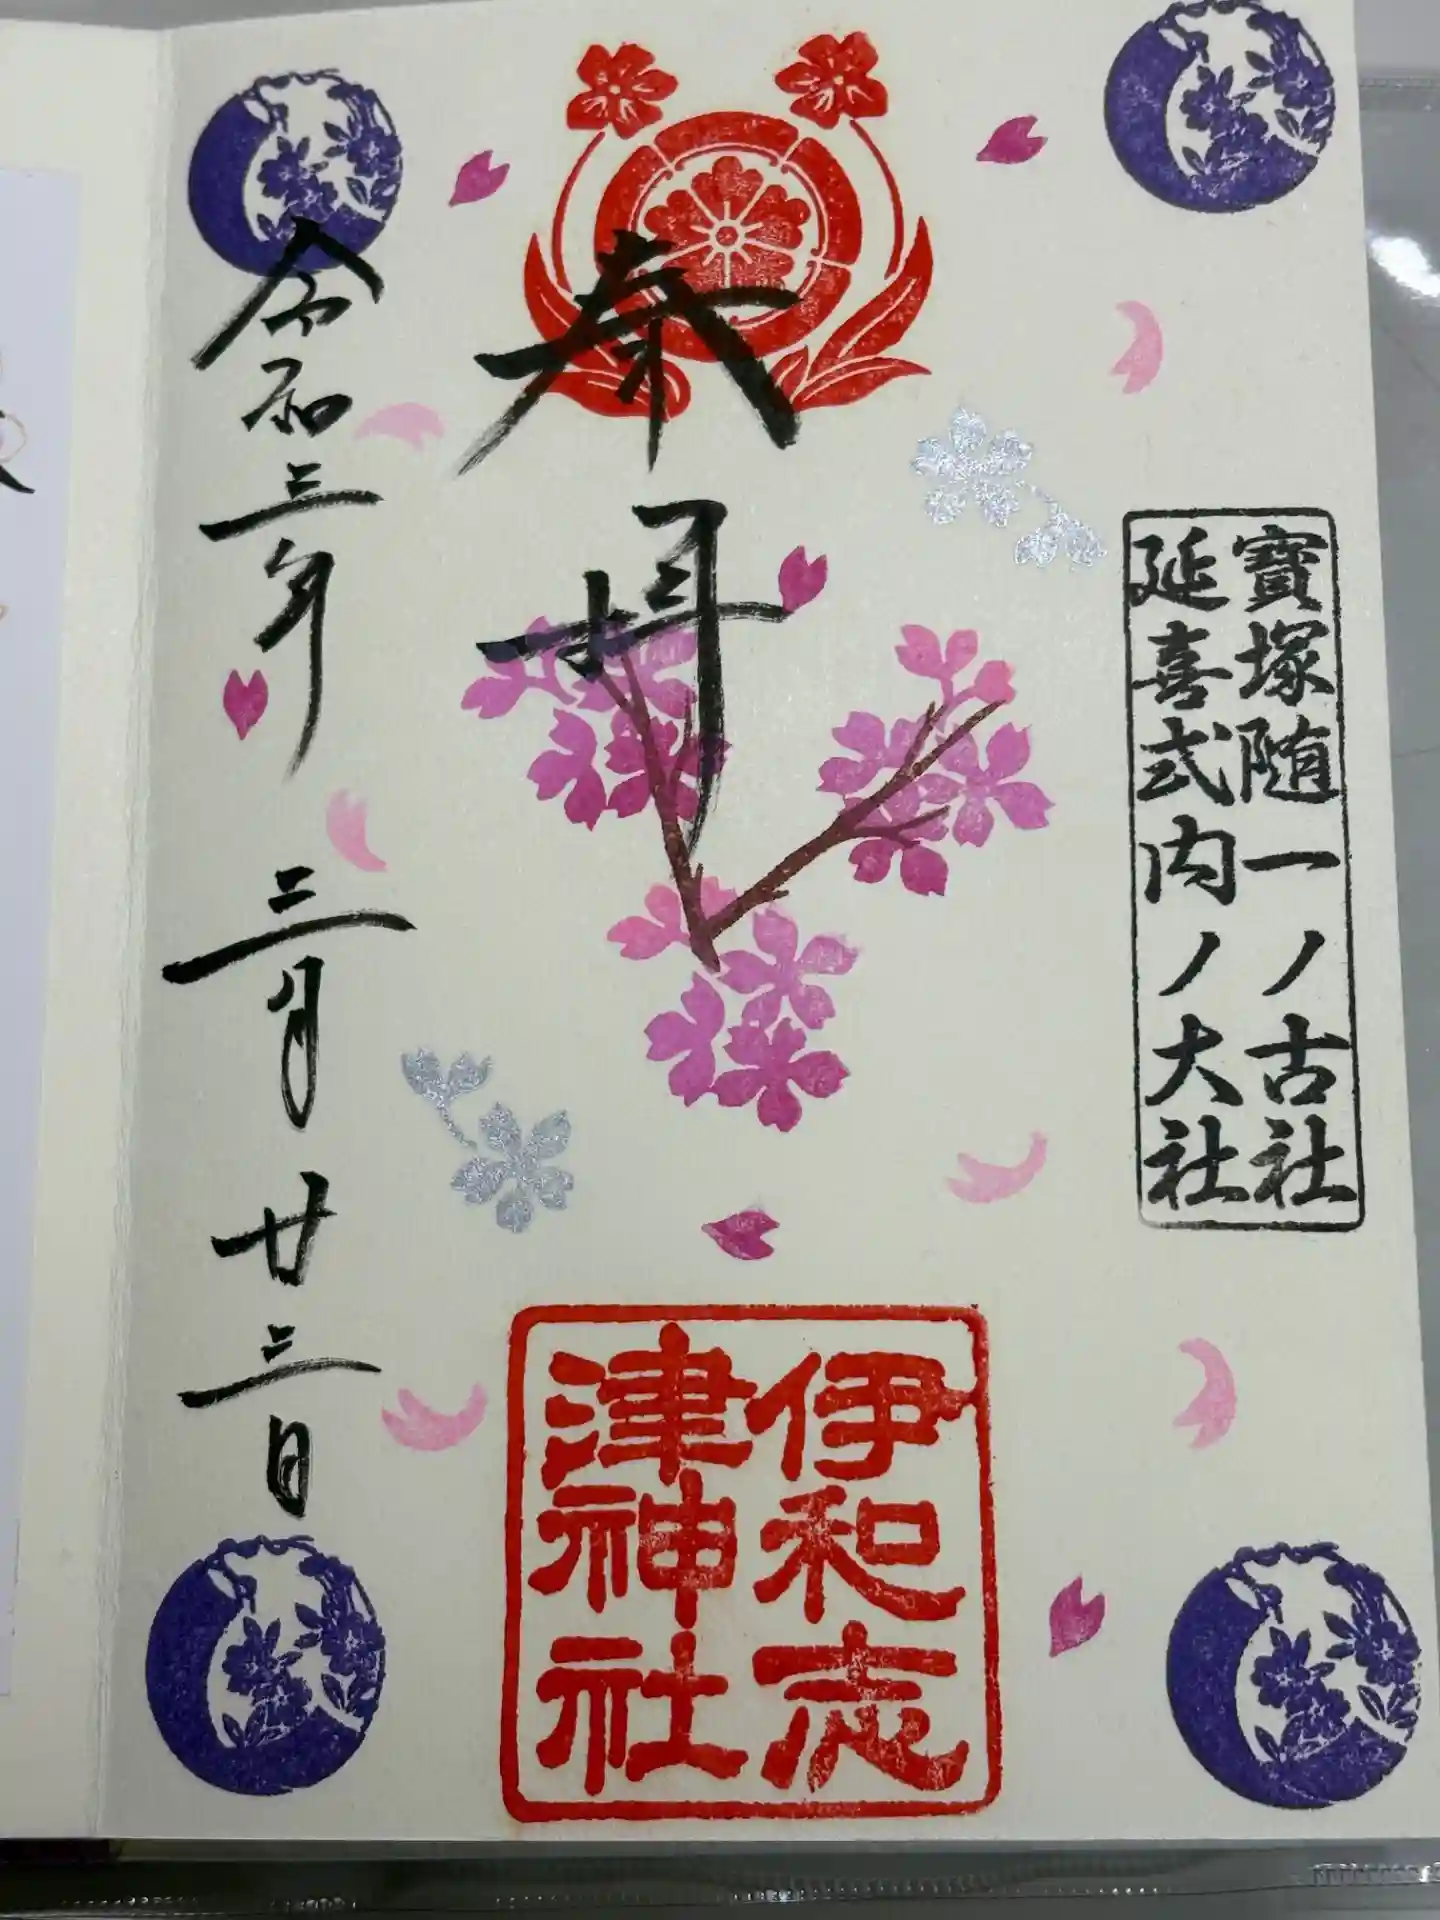 寶塚随一ノ古社
延喜式内ノ大社
奉拝
伊和志
津神社
令和三年三月廿三日